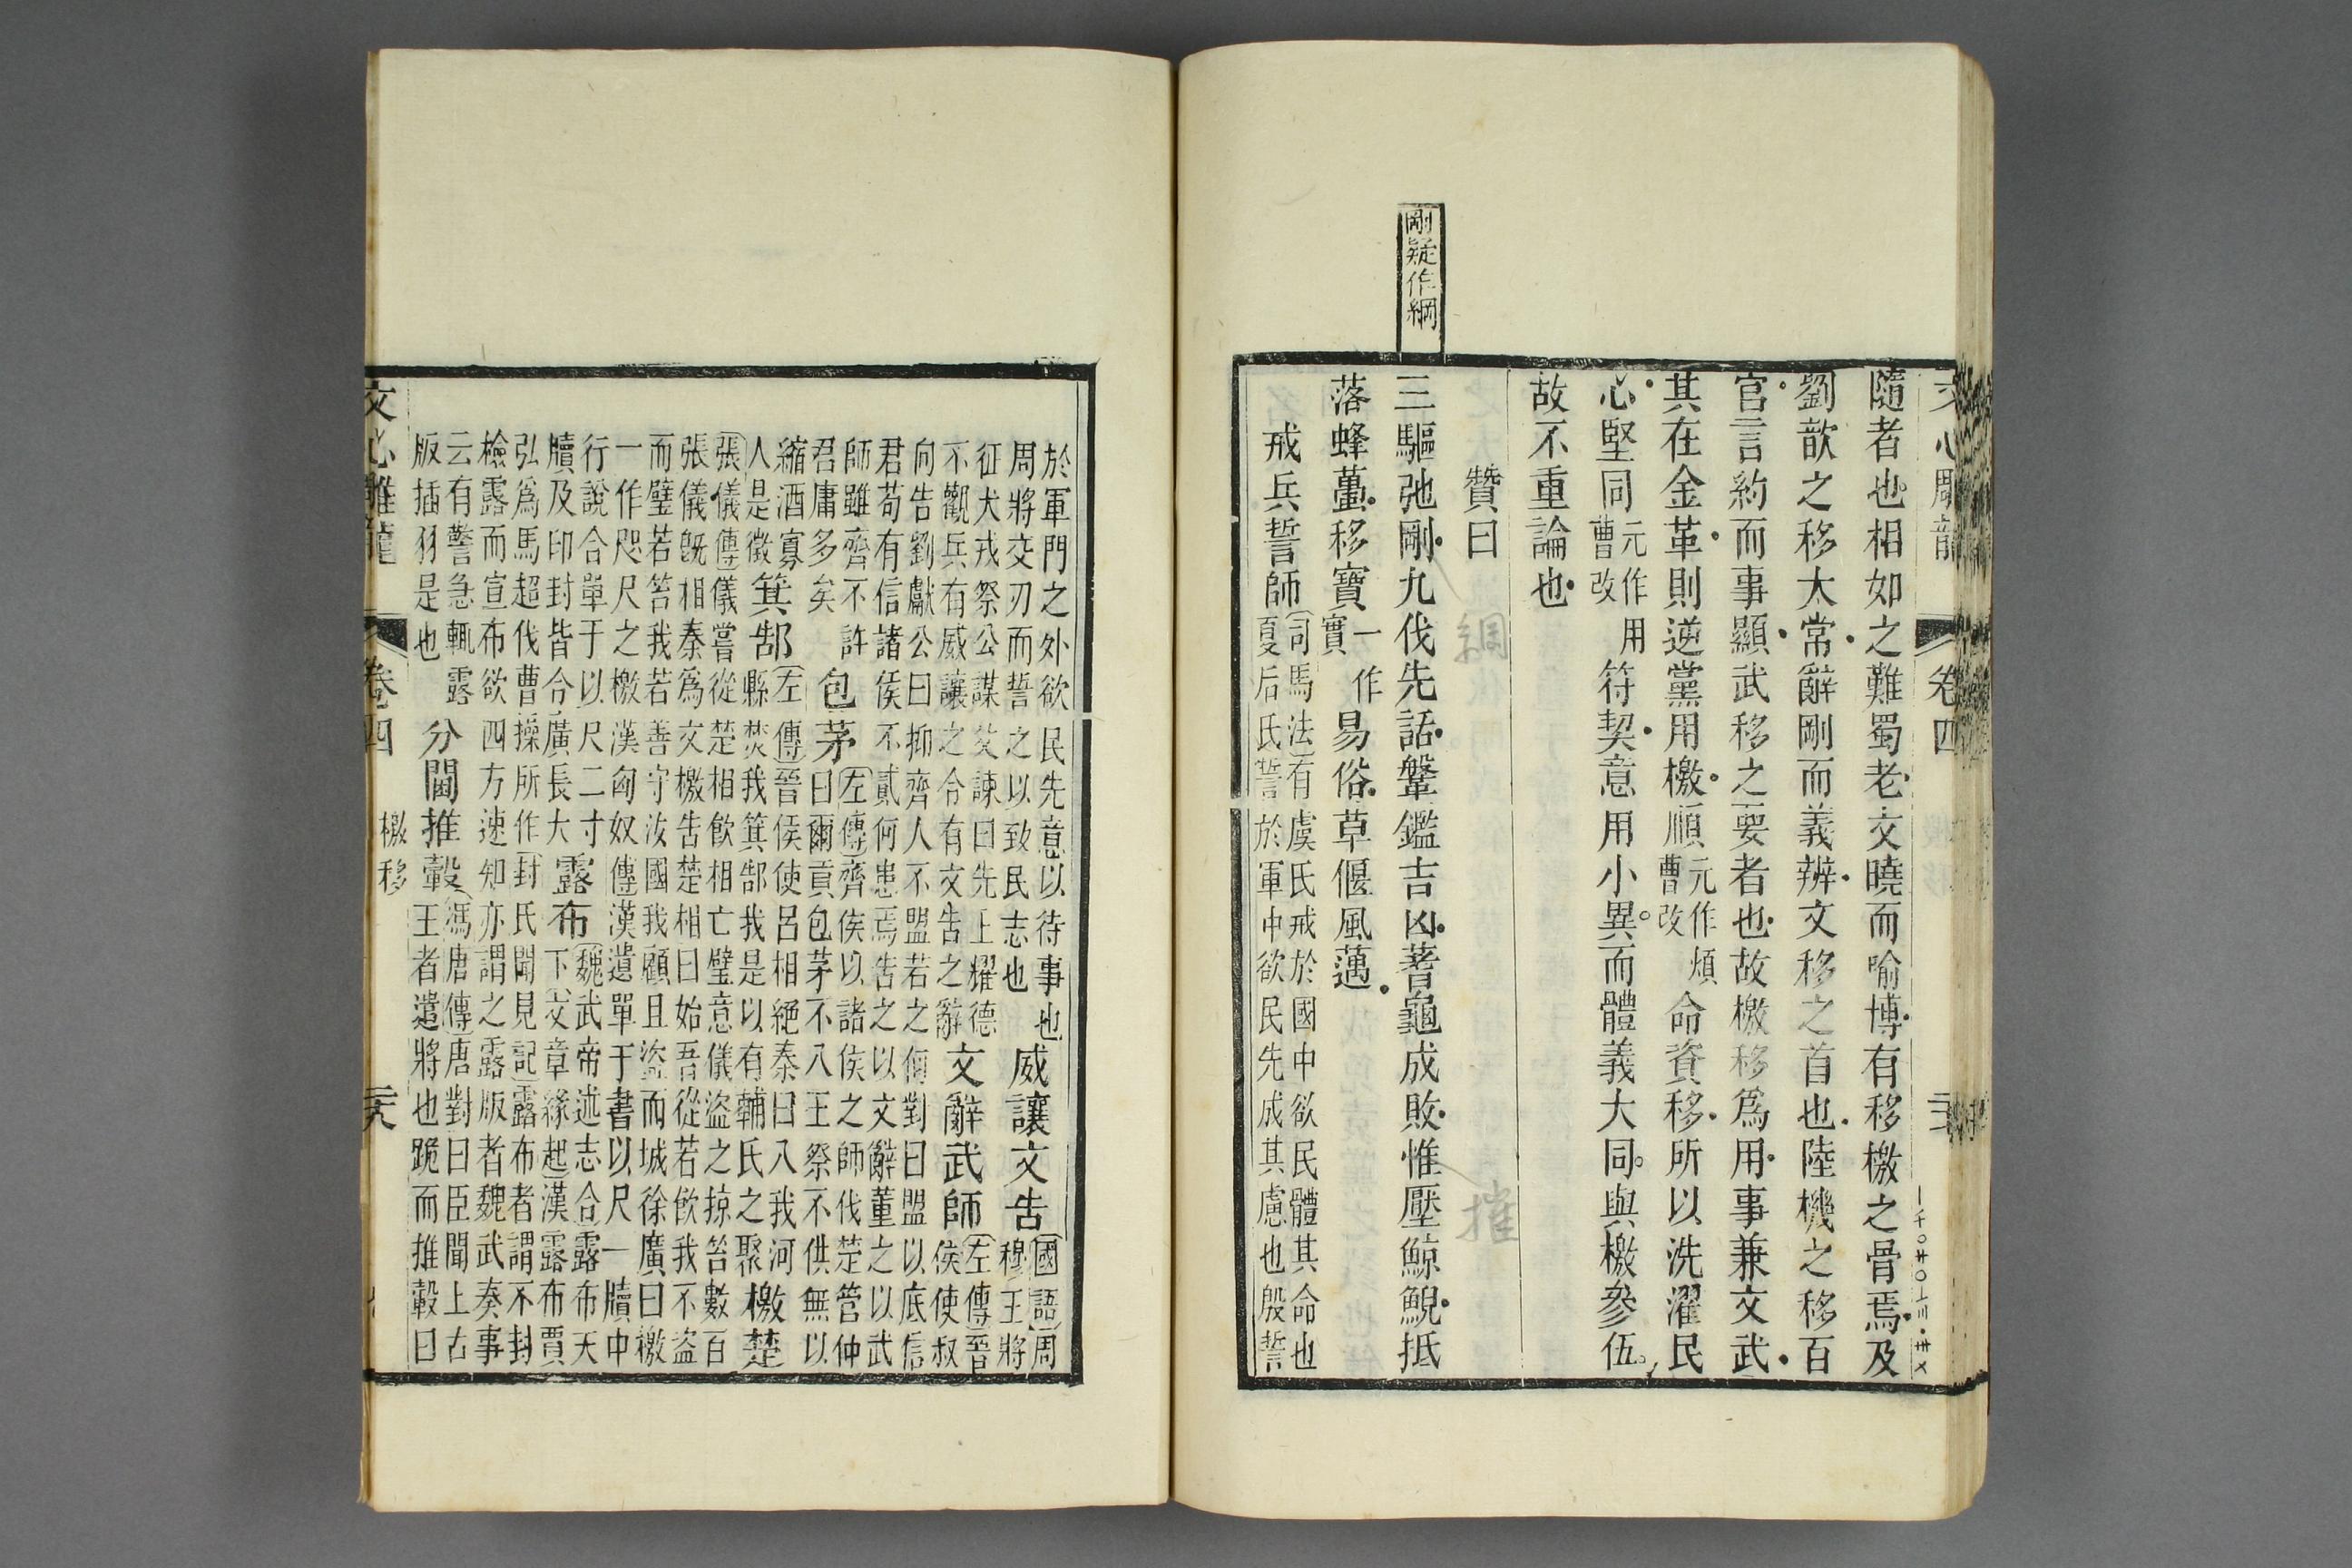 文心雕龍　卷四
隨者也相如之難蜀老文曉而喻博有移檄之骨焉及
劉歆之移太常辭剛而義辨文移之首也陸機之移百
官言約而事顯武移之要者也故檄移爲用事兼文武
其在金革則逆黨用檄順元作煩曹改命資移所以洗濯民
心堅同元作用曹改符契意用小異而體義大同與檄參伍
故不重論也
贊曰
三驅弛剛九伐先話鞶鑑吉凶蓍龜成敗惟壓鯨鯢抵
落蜂蠆移寶一作實易俗草偃風邁
剛疑作綱
綱
摧
戒兵誓師司馬法有虞氏戒於國中欲民體其命也
夏后氏誓於軍中欲民先成其慮也殷誓
於軍門之外欲民先意以待事也威讓文告國語周
周將交刃而誓之以致民志也穆王將
征犬戎祭公謀父諫曰先王耀德
不觀兵有威讓之令有文告之辭文辭武師左傳晉
向告劉獻公曰抑齊人不盟若之何對曰盟以底信
君苟有信諸侯不貳何患焉告之以文辭董之以武
師雖齊不許
君庸多矣包茅左傳齊侯以諸侯之師伐楚管仲
曰爾貢包茅不入王祭不供無以
縮酒寡
人是徵箕郜左傳晉侯使呂相絕秦曰入我河
縣焚我箕郜我是以有輔氏之聚檄楚
張儀傳儀嘗從楚相飲相亡璧意儀盜之掠笞數百
張儀旣相秦爲文檄告楚相曰始吾從若飲我不盜
而璧若笞我若善守汝國我顧且盜而城徐廣曰檄
一作咫尺之檄漢匈奴傳漢遺單于書以尺一牘中
行說令單于以尺二寸
牘及印封皆令廣長大露布魏武帝述志令露布天
下文章緣起漢露布賈
弘爲馬超伐曹操所作封氏聞見記露布者謂不封
檢露而宣布欲四方速知亦謂之露版者魏武奏事
云有警急輒露
版插羽是也分閫推轂馮唐傳唐對曰臣聞上古
王者遣將也跪而推轂曰
文心雕龍　卷四　檄移　二六